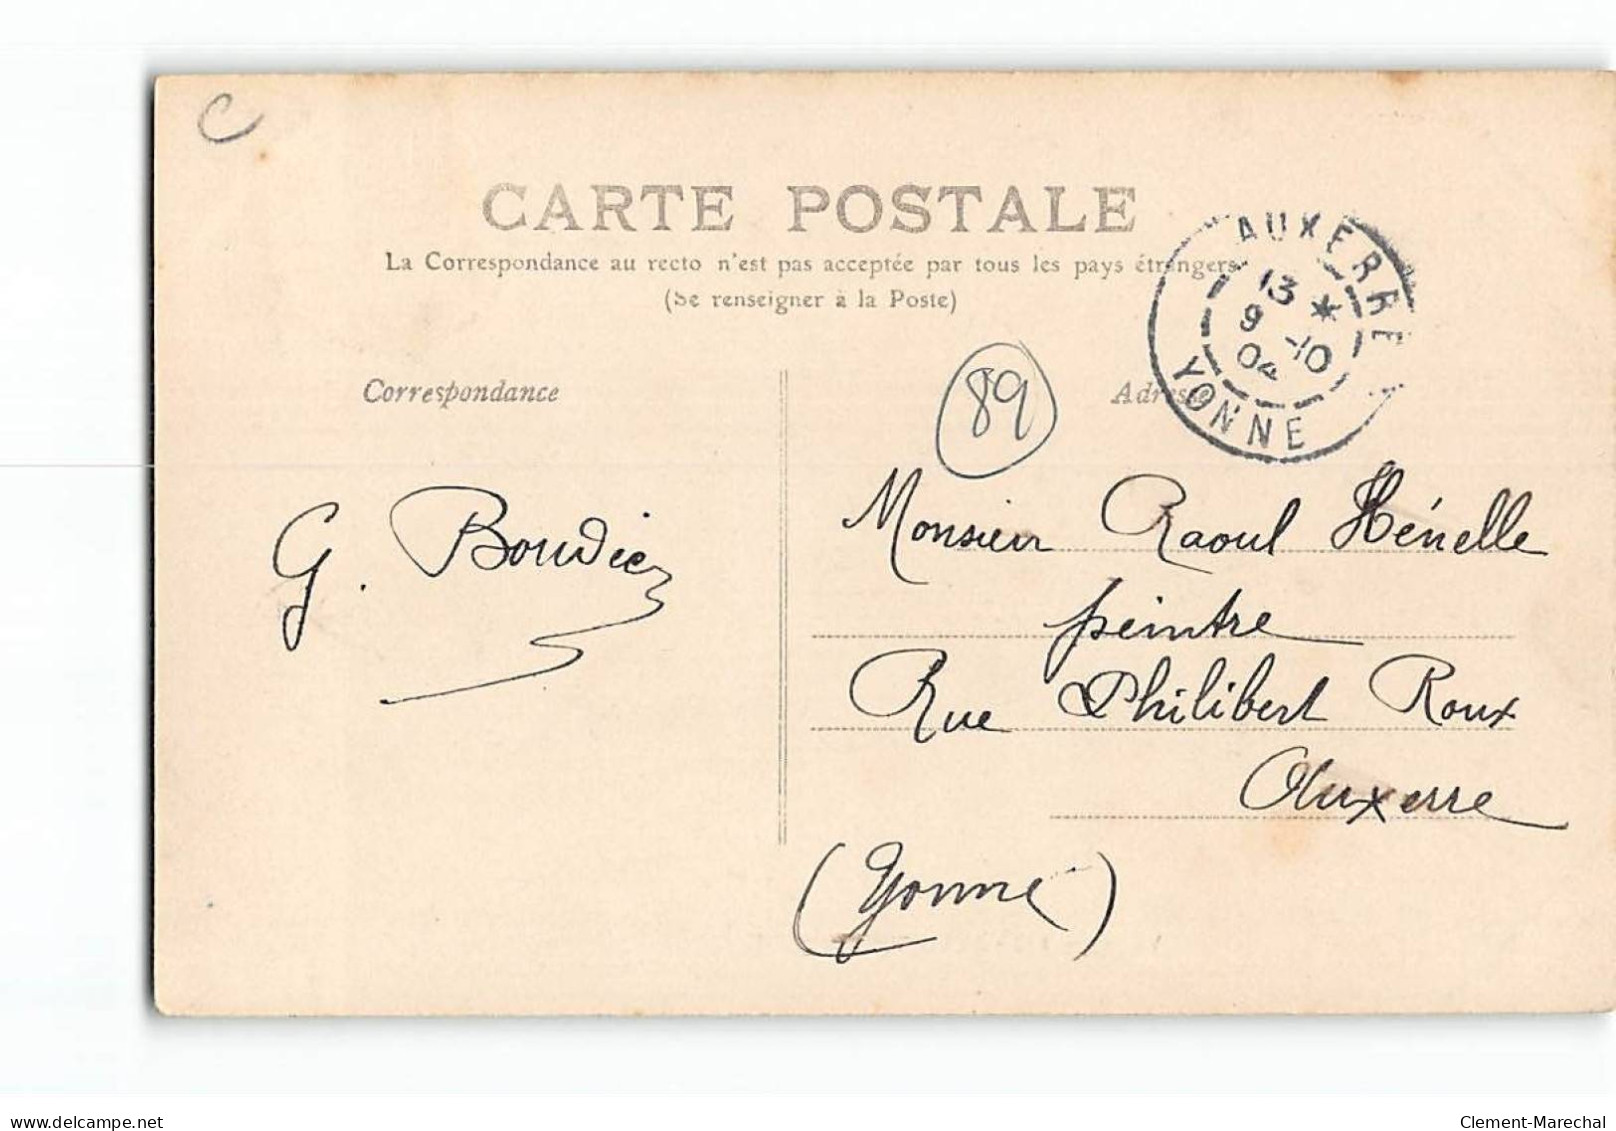 C
CARTE POSTALE
La Correspondance au recto n'est pas acceptée par tous les pays étrangers
(Se renseigner à la Poste)
AUXERRE
13 *
9 -10
04
YONNE
89
Correspondance
Adresse
G. Boudier
Monsieur Raoul Hénelle
peintre
Rue Philibert Roux
Auxerre
(Yonne)
www.delcampe.net
Clement-Marechal